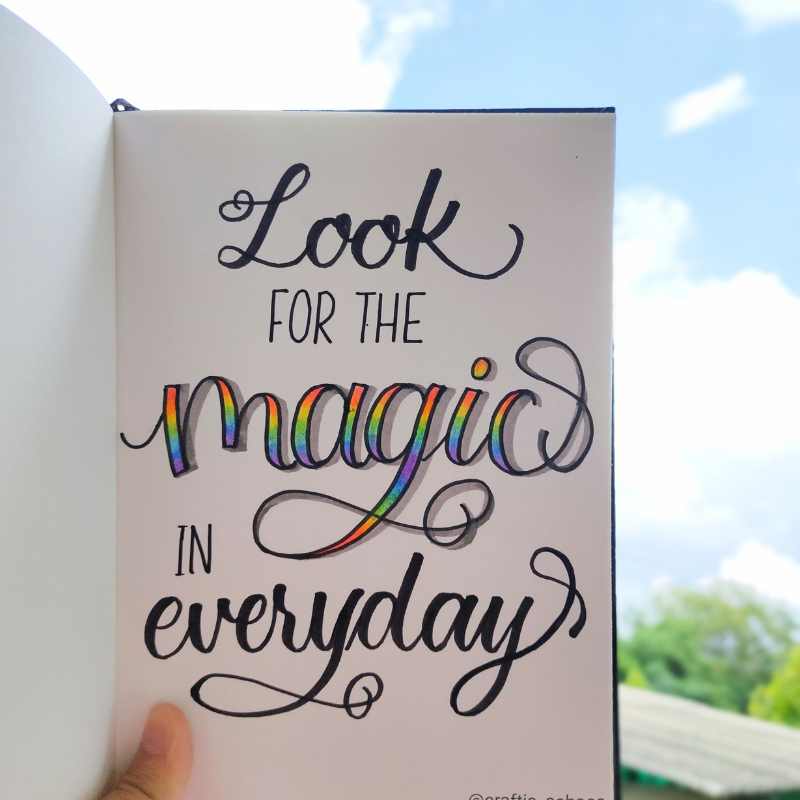 Look
FOR THE
magic
IN
everyday